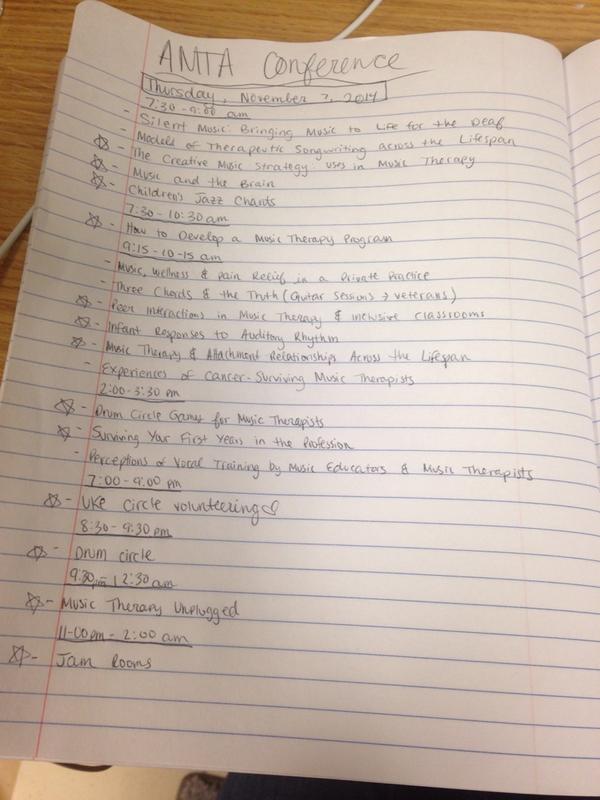 AMTA Conference
Thursday, November 7, 2014
7:30-9:00 am
- Silent Music: Bringing Music to Life for the Deaf
- Models of Therapeutic Songwriting across the Lifespan
☆ - The Creative Music Strategy: uses in Music Therapy
☆ - Music and the Brain
☆ - Children's Jazz Chants
7:30-10:30 am
☆ - How to Develop a Music Therapy Program
9:15-10-15 am
- Music, Wellness & Pain Relief in a Private Practice
- Three Chords & the Truth (Guitar Sessions → veterans)
☆ - Peer Interactions in Music Therapy & inclusive classrooms
☆ - Infant Responses to Auditory Rhythm
☆ - Music Therapy & Attachment Relationships Across the Lifespan
- Experiences of Cancer-Surviving Music Therapists
2:00-3:30 pm
☆ - Drum Circle Games for Music Therapists
☆ - Surviving Your First Years in the Profession
- Perceptions of Vocal Training by Music Educators & Music Therapists
7:00-9:00 pm
☆ - Uke Circle volunteering ♡
8:30-9:30 pm
☆ - Drum circle
9:30pm-12:30 am
☆ - Music Therapy Unplugged
11-00pm-2:00 am
☆ - Jam Rooms